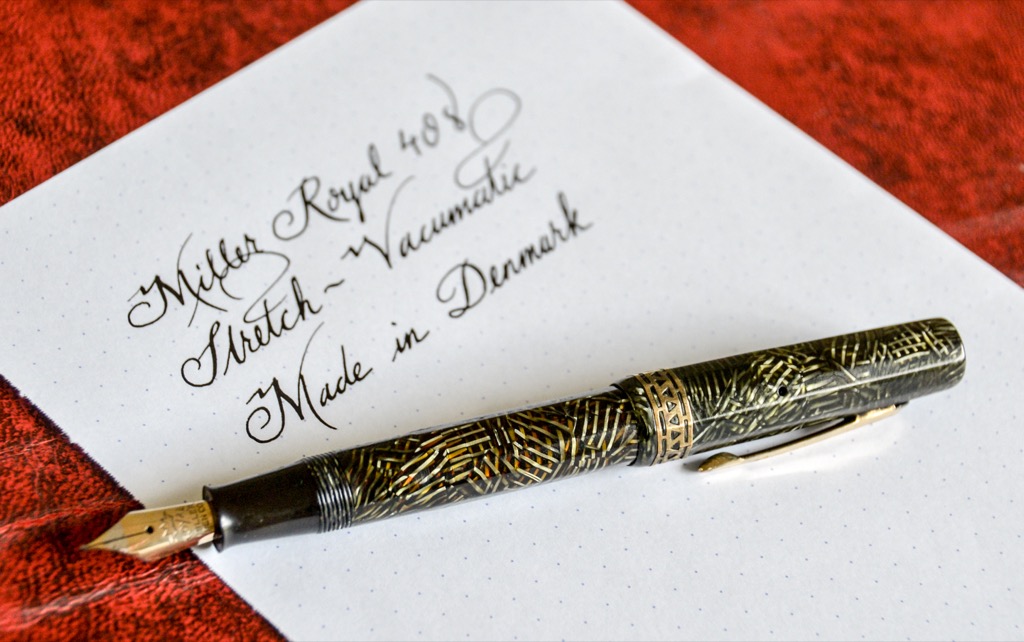 Miller Royal 408
Stretch ~ Vacumatic
Made in Denmark